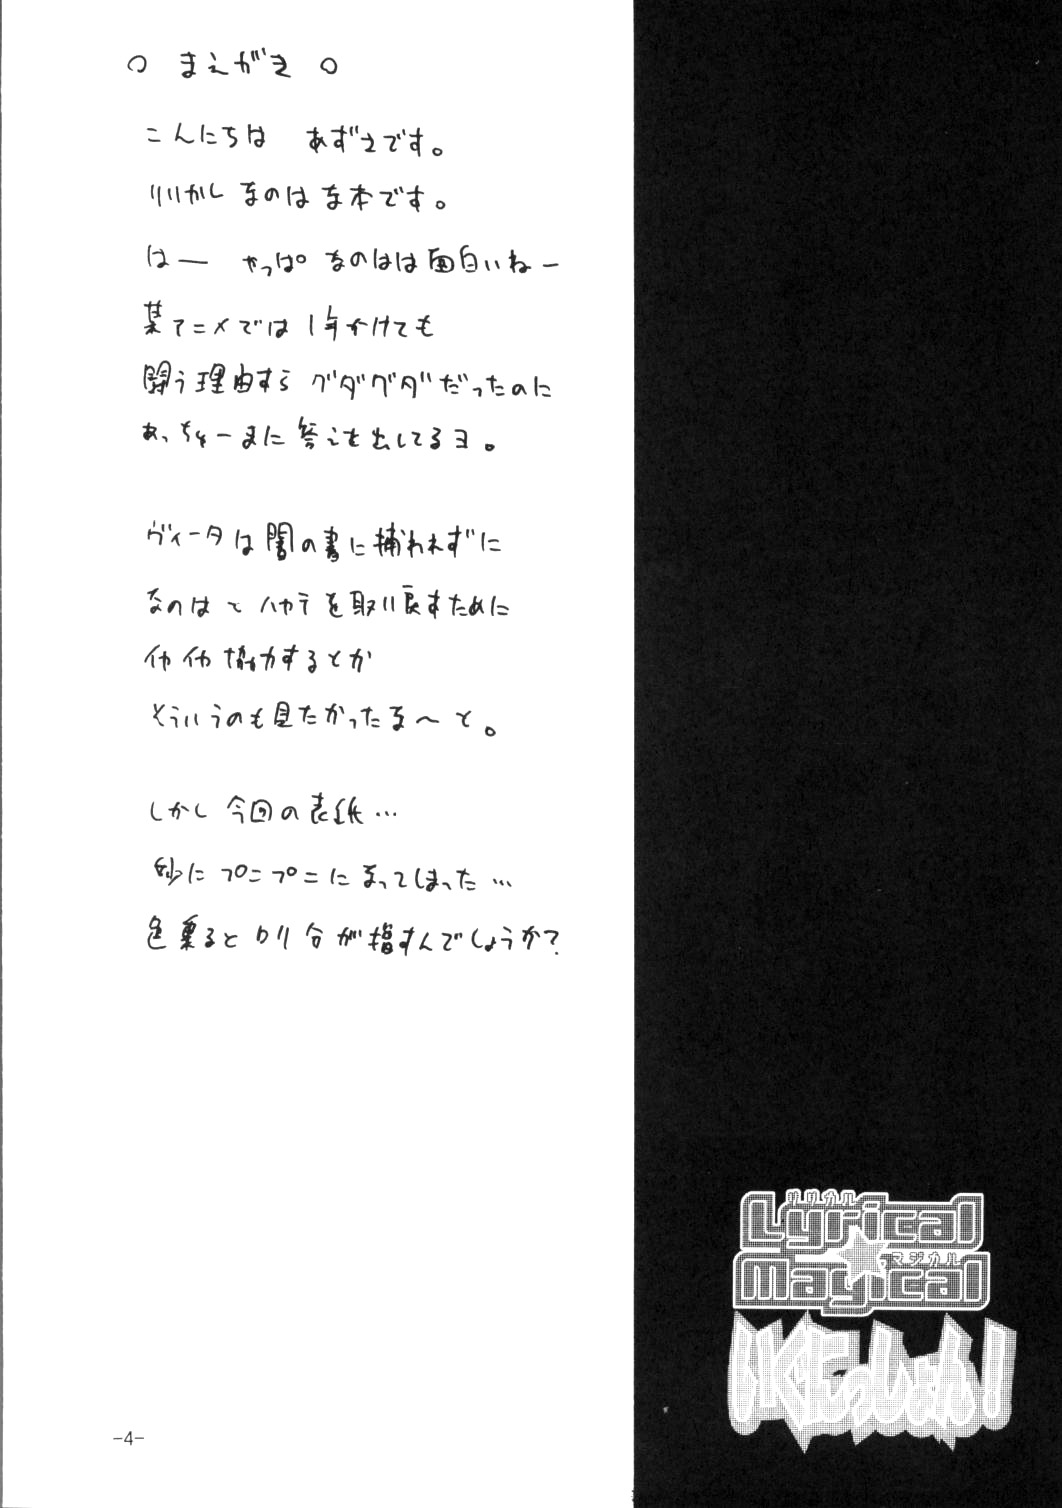 ○ まえがき ○
こんにちは あずさです。
リリカル なのは な本です。
はー やっぱ なのはは面白いねー
某アニメでは1年かけても
闘う理由すら グダグダだったのに
あっちゅーまに答えを出してるヨ。
ヴィータは闇の書に捕われずに
なのはとハヤテを取り戻すために
イヤイヤ協力するとか
そういうのも見たかったな〜と。
しかし今回の表紙…
妙にプニプニになってしまった…
色乗ると ロリ分が増すんでしょうか?
リリカル
Lyrical
マジカル
Magical
-4-